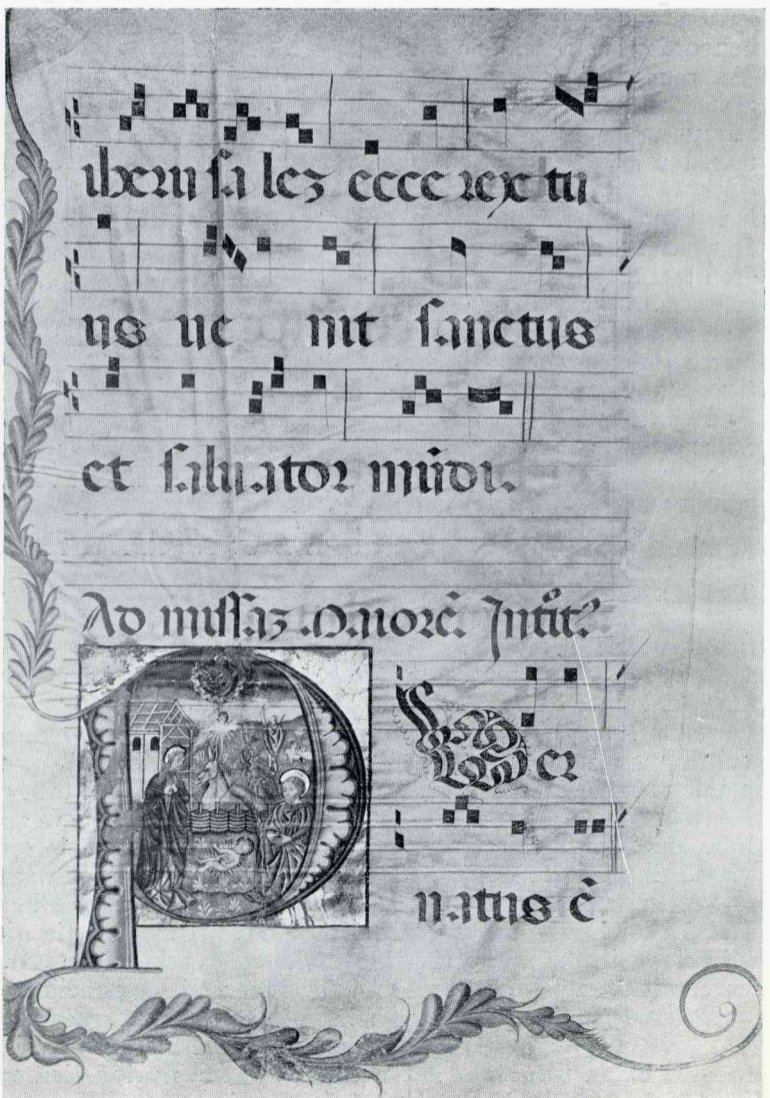 iherusalez ecce rex tu
us ue nit sanctus
et saluator mūdi.
Ad missaz maiorē. Introit⁹
P uer
natus ē